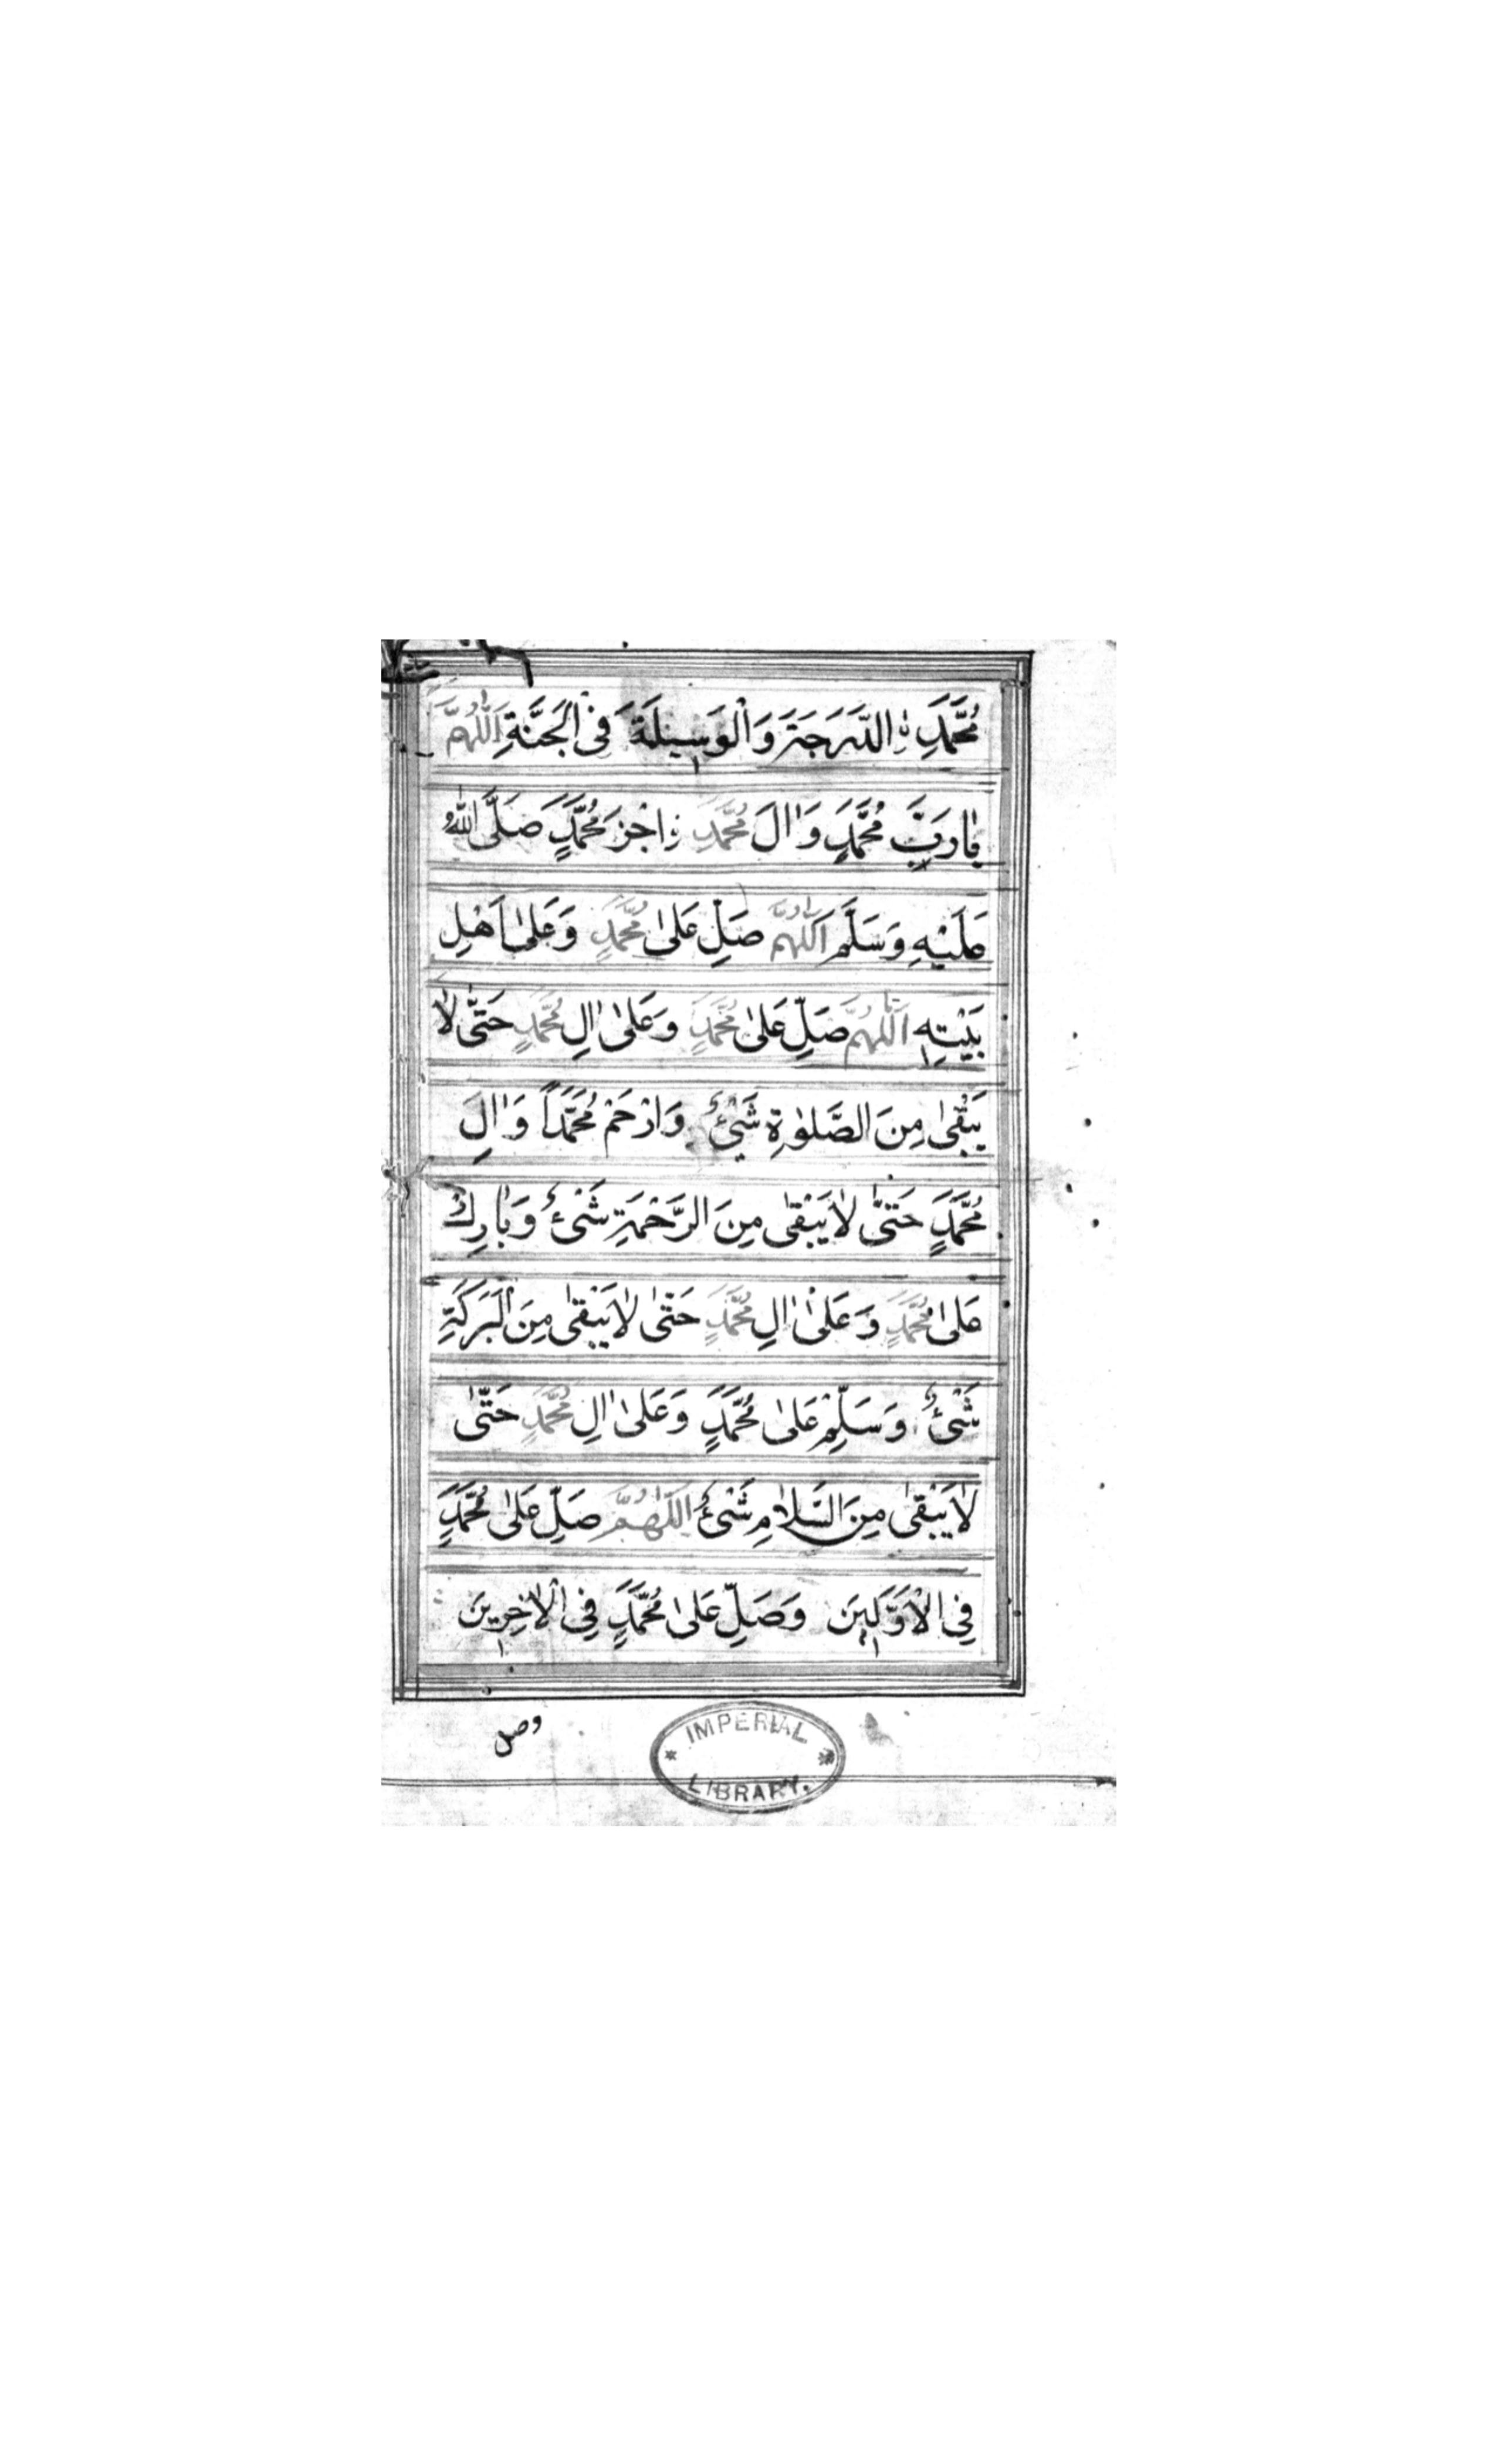 مُحَمَّدِ نِ الدَّرَجَةَ وَالْوَسِيْلَةَ فِى الْجَنَّةِ اَللّٰهُمَّ
يَارَبَّ مُحَمَّدٍ وَاٰلَ مُحَمَّدٍ نِ اجْزِ مُحَمَّدٍ صَلَّى اللّٰهُ
عَلَيْهِ وَسَلَّمَ اَللّٰهُمَّ صَلِّ عَلىٰ مُحَمَّدٍ وَعَلىٰ اَهْلِ
بَيْتِهٖ اَللّٰهُمَّ صَلِّ عَلىٰ مُحَمَّدٍ وَعَلىٰ اٰلِ مُحَمَّدٍ حَتّٰى لَا
يَبْقىٰ مِنَ الصَّلوٰةِ شَيْئٌ وَارْحَمْ مُحَمَّداً وَاٰلِ
مُحَمَّدٍ حَتّٰى لَا يَبْقىٰ مِنَ الرَّحْمَةِ شَيْئٌ وَبَارِكْ
عَلىٰ مُحَمَّدٍ وَعَلىٰ اٰلِ مُحَمَّدٍ حَتّٰى لَا يَبْقىٰ مِنَ الْبَرَكَةِ
شَيْئٌ وَسَلِّمْ عَلىٰ مُحَمَّدٍ وَعَلىٰ اٰلِ مُحَمَّدٍ حَتّٰى
لَا يَبْقىٰ مِنَ السَّلَامِ شَيْئٌ اَللّٰهُمَّ صَلِّ عَلىٰ مُحَمَّدٍ
فِى الْاَوَّلِيْنَ وَصَلِّ عَلىٰ مُحَمَّدٍ فِى الْاٰخِرِيْنَ
وصل
IMPERIAL
LIBRARY.